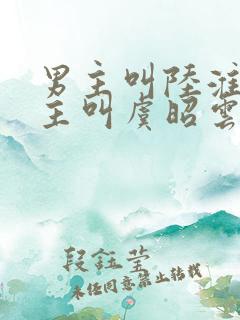 男主叫陸淮
主叫虞昭雲
段鈺瑩
未任同意禁止转载